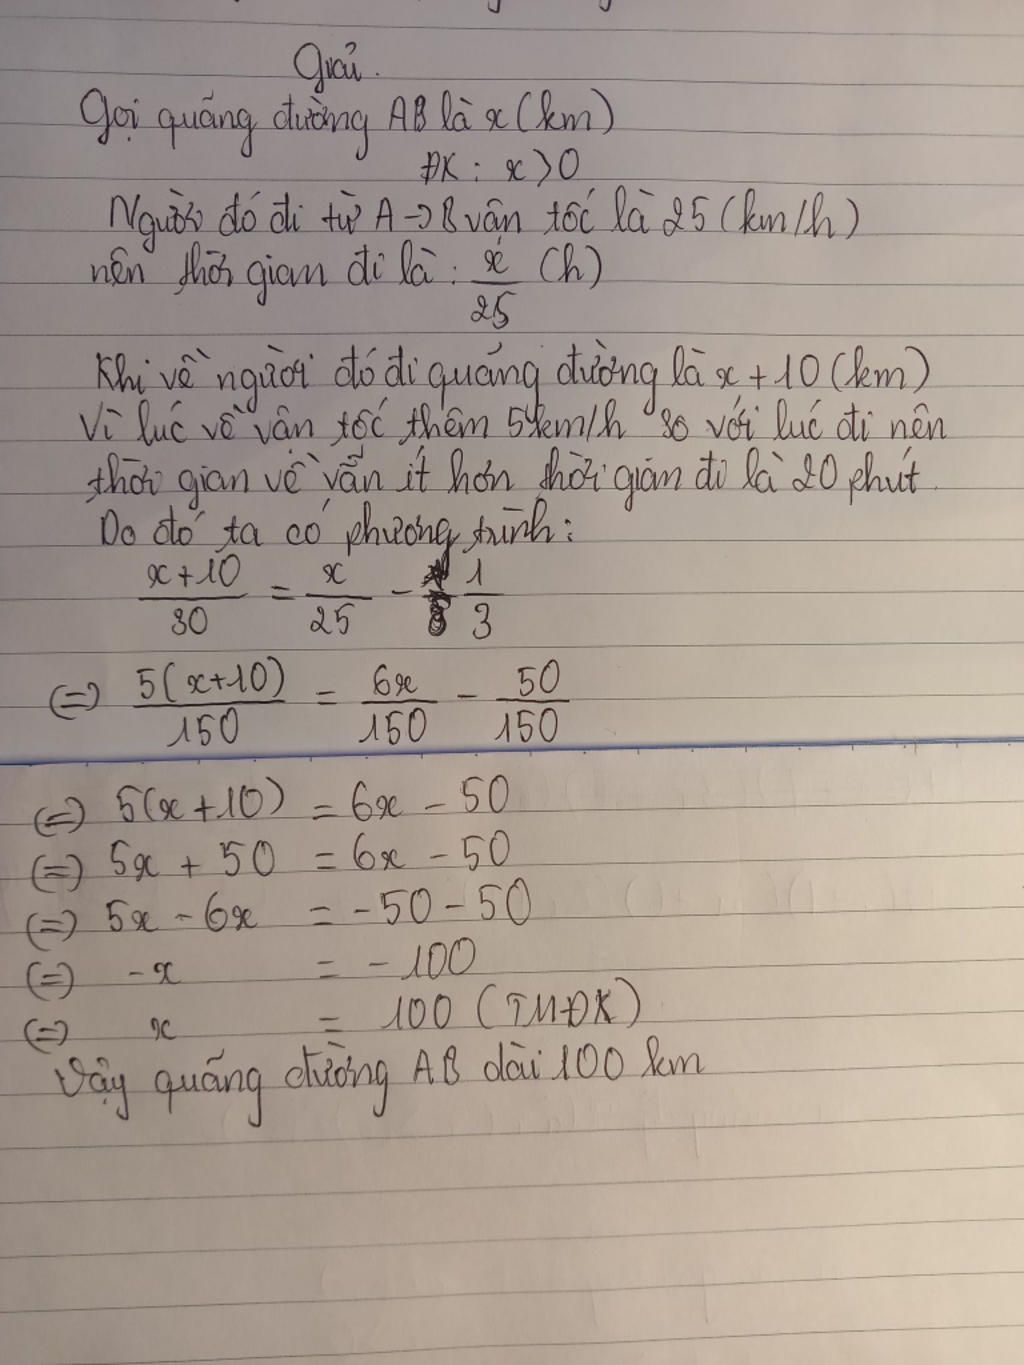 Giải.
Gọi quãng đường AB là x (km)
ĐK : x > 0
Người đó đi từ A → B vân tốc là 25 (km/h)
nên thời gian đi là : x/25 (h)
Khi về người đó đi quãng đường là x + 10 (km)
Vì lúc về vận tốc thêm 5km/h so với lúc đi nên
thời gian về vẫn ít hơn thời gian đi là 20 phút.
Do đó ta có phương trình :
(x+10)/30 = x/25 - 1/3
(=) 5(x+10)/150 = 6x/150 - 50/150
(=) 5(x+10) = 6x - 50
(=) 5x + 50 = 6x - 50
(=) 5x - 6x = -50 - 50
(=) -x = -100
(=) x = 100 (TMĐK)
Vậy quãng đường AB dài 100 km